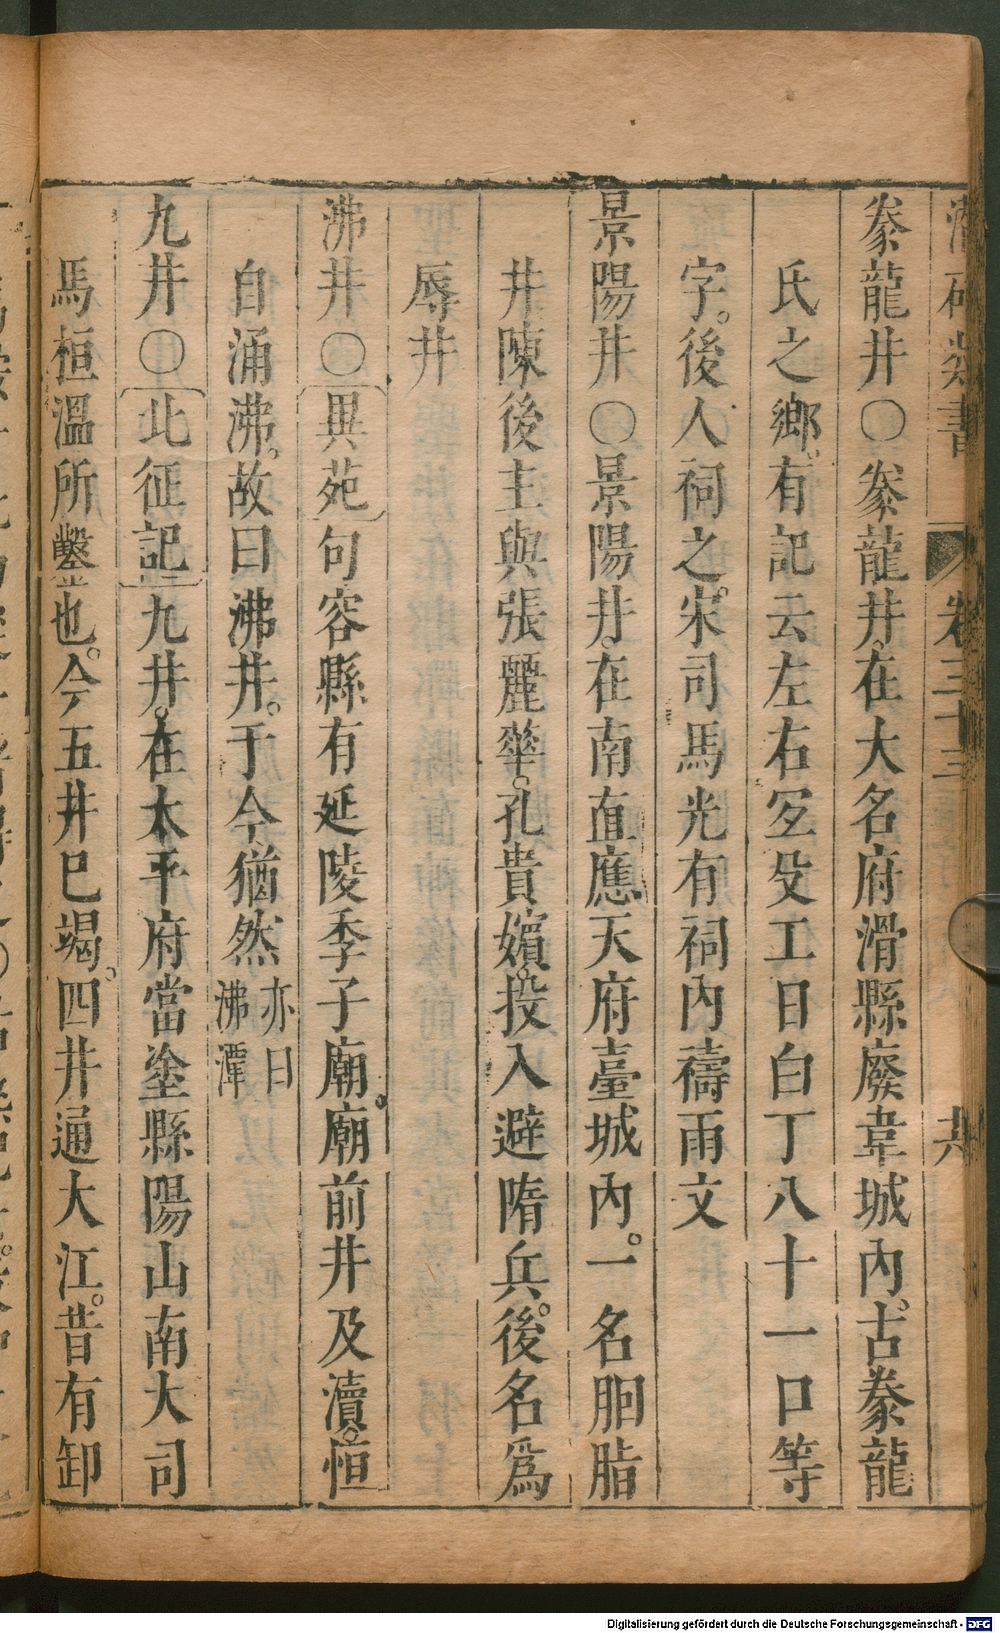 潛確類書 卷三十三 共
豢龍井○豢龍井在大名府滑縣廢韋城內古豢龍
氏之鄉有記云左右㝎殳工日白丁八十一口等
字後人祠之宋司馬光有祠內禱雨文
景陽井○景陽井在南直應天府臺城內一名胭脂
井陳後主與張麗華孔貴嬪投入避隋兵後名爲
辱井
沸井○異苑句容縣有延陵季子廟廟前井及瀆恒
自涌沸故曰沸井于今猶然亦曰沸潭
九井○北征記九井在太平府當塗縣陽山南大司
馬桓溫所鑿也今五井巳竭四井通大江昔有卸
Digitalisierung gefördert durch die Deutsche Forschungsgemeinschaft - DFG